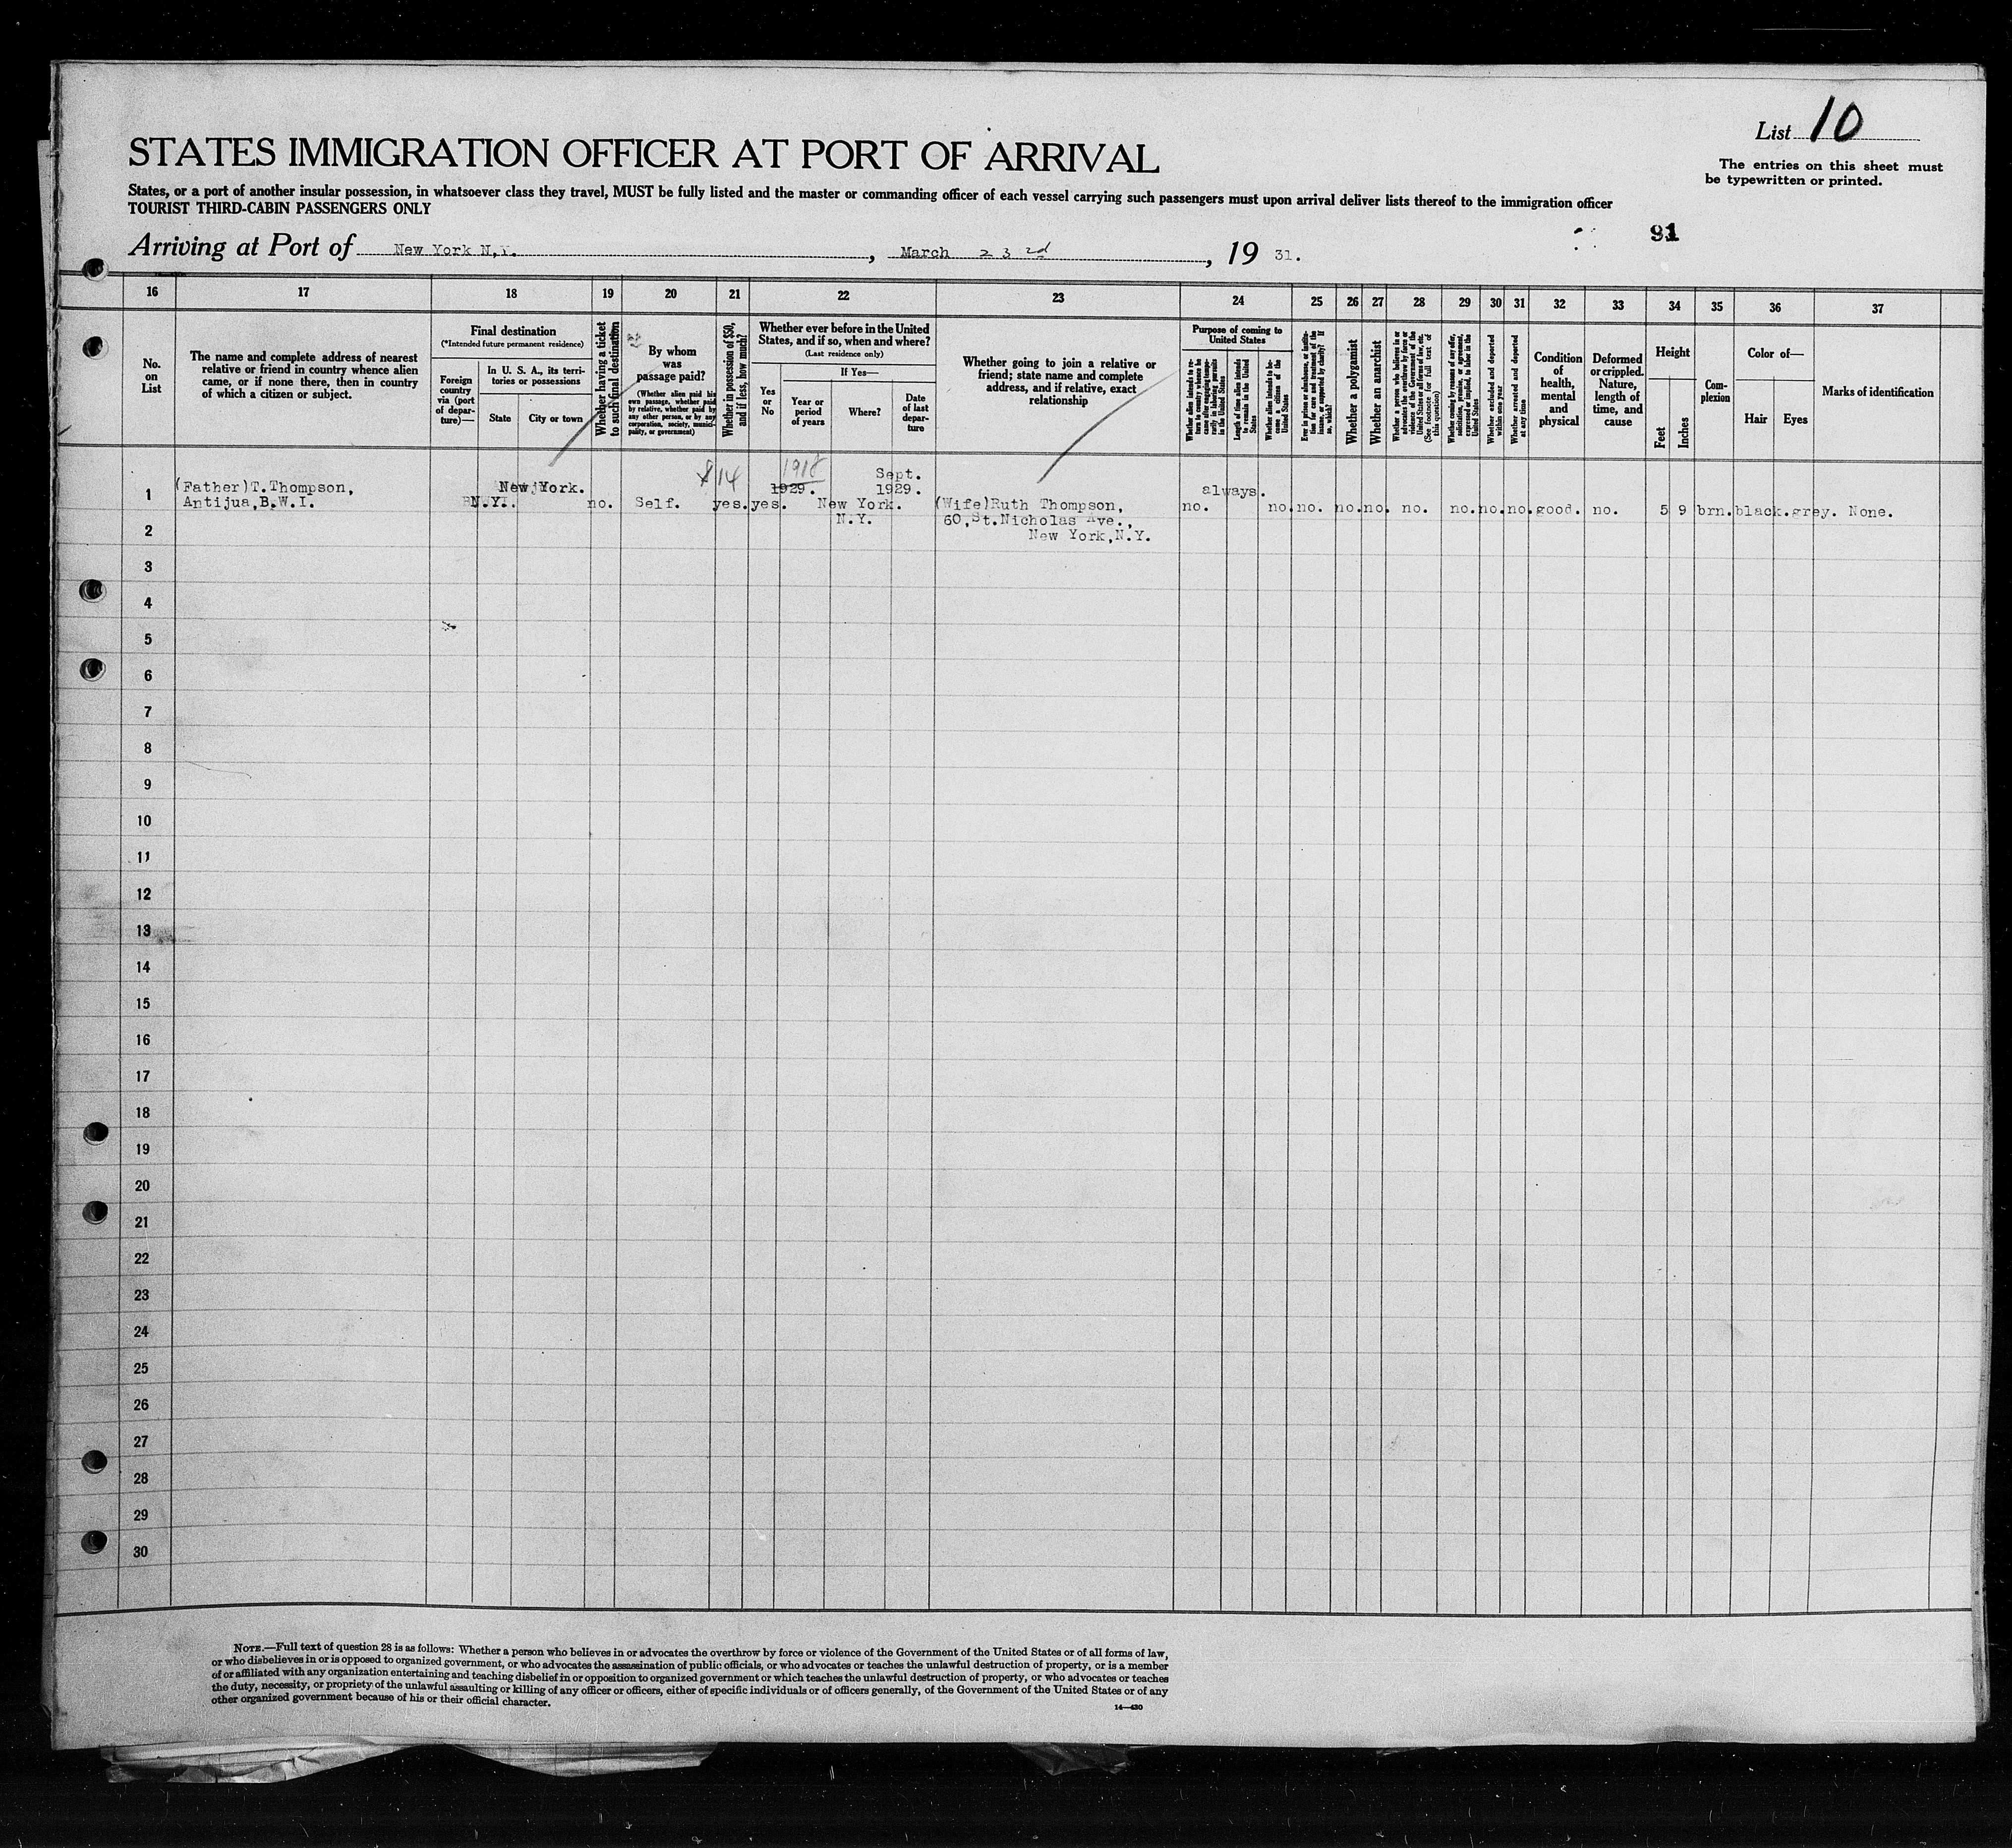 List 10
STATES IMMIGRATION OFFICER AT PORT OF ARRIVAL
The entries on this sheet must
be typewritten or printed.
States, or a port of another insular possession, in whatsoever class they travel, MUST be fully listed and the master or commanding officer of each vessel carrying such passengers must upon arrival deliver lists thereof to the immigration officer
TOURIST THIRD-CABIN PASSENGERS ONLY
91
Arriving at Port of New York N.Y. , March 23rd , 19 31.
16 17 18 19 20 21 22 23 24 25 26 27 28 29 30 31 32 33 34 35 36 37
No.
on
List
The name and complete address of nearest
relative or friend in country whence alien
came, or if none there, then in country
of which a citizen or subject.
Final destination
(*Intended future permanent residence)
Foreign
country
via (port
of depar-
ture)—
In U. S. A., its terri-
tories or possessions
State
City or town
Whether having a ticket
to such final destination
By whom
was
passage paid?
(Whether alien paid his
own passage, whether paid
by relative, whether paid by
any other person, or by any
corporation, society, munici-
pality, or government)
Whether in possession of $50,
and if less, how much?
Whether ever before in the United
States, and if so, when and where?
(Last residence only)
Yes
or
No
If Yes—
Year or
period
of years
Where?
Date
of last
depar-
ture
Whether going to join a relative or
friend; state name and complete
address, and if relative, exact
relationship
Purpose of coming to
United States
Whether alien intends to re-
turn to country whence he
came after engaging tempo-
rarily in laboring pursuits
in the United States
Length of time alien intends
to remain in the United
States
Whether alien intends to be-
come a citizen of the
United States
Ever in prison or almshouse, or institu-
tion for care and treatment of the
insane, or supported by charity? If
so, which?
Whether a polygamist
Whether an anarchist
Whether a person who believes in or
advocates the overthrow by force or
violence of the Government of the
United States or all forms of law, etc.
(See footnote for full text of
this question)
Whether coming by reasons of any offer,
solicitation, promise, or agreement,
expressed or implied, to labor in the
United States
Whether excluded and deported
within one year
Whether arrested and deported
at any time
Condition
of
health,
mental
and
physical
Deformed
or crippled.
Nature,
length of
time, and
cause
Height
Feet
Inches
Com-
plexion
Color of—
Hair
Eyes
Marks of identification
1
(Father)T.Thompson,
Antijua,B.W.I.
New York.
N.Y.
no.
Self.
$14
yes.
yes.
1918
1929.
New York.
N.Y.
Sept.
1929.
(Wife)Ruth Thompson,
60,St.Nicholas Ave.,
New York,N.Y.
no.
always.
no. no. no. no. no. no. no. no. good. no. 5 9 brn. black. grey. None.
2
3
4
5
6
7
8
9
10
11
12
13
14
15
16
17
18
19
20
21
22
23
24
25
26
27
28
29
30
NOTE.—Full text of question 28 is as follows: Whether a person who believes in or advocates the overthrow by force or violence of the Government of the United States or of all forms of law,
or who disbelieves in or is opposed to organized government, or who advocates the assassination of public officials, or who advocates or teaches the unlawful destruction of property, or is a member
of or affiliated with any organization entertaining and teaching disbelief in or opposition to organized government or which teaches the unlawful destruction of property, or who advocates or teaches
the duty, necessity, or propriety of the unlawful assaulting or killing of any officer or officers, either of specific individuals or of officers generally, of the Government of the United States or of any
other organized government because of his or their official character.
14—430